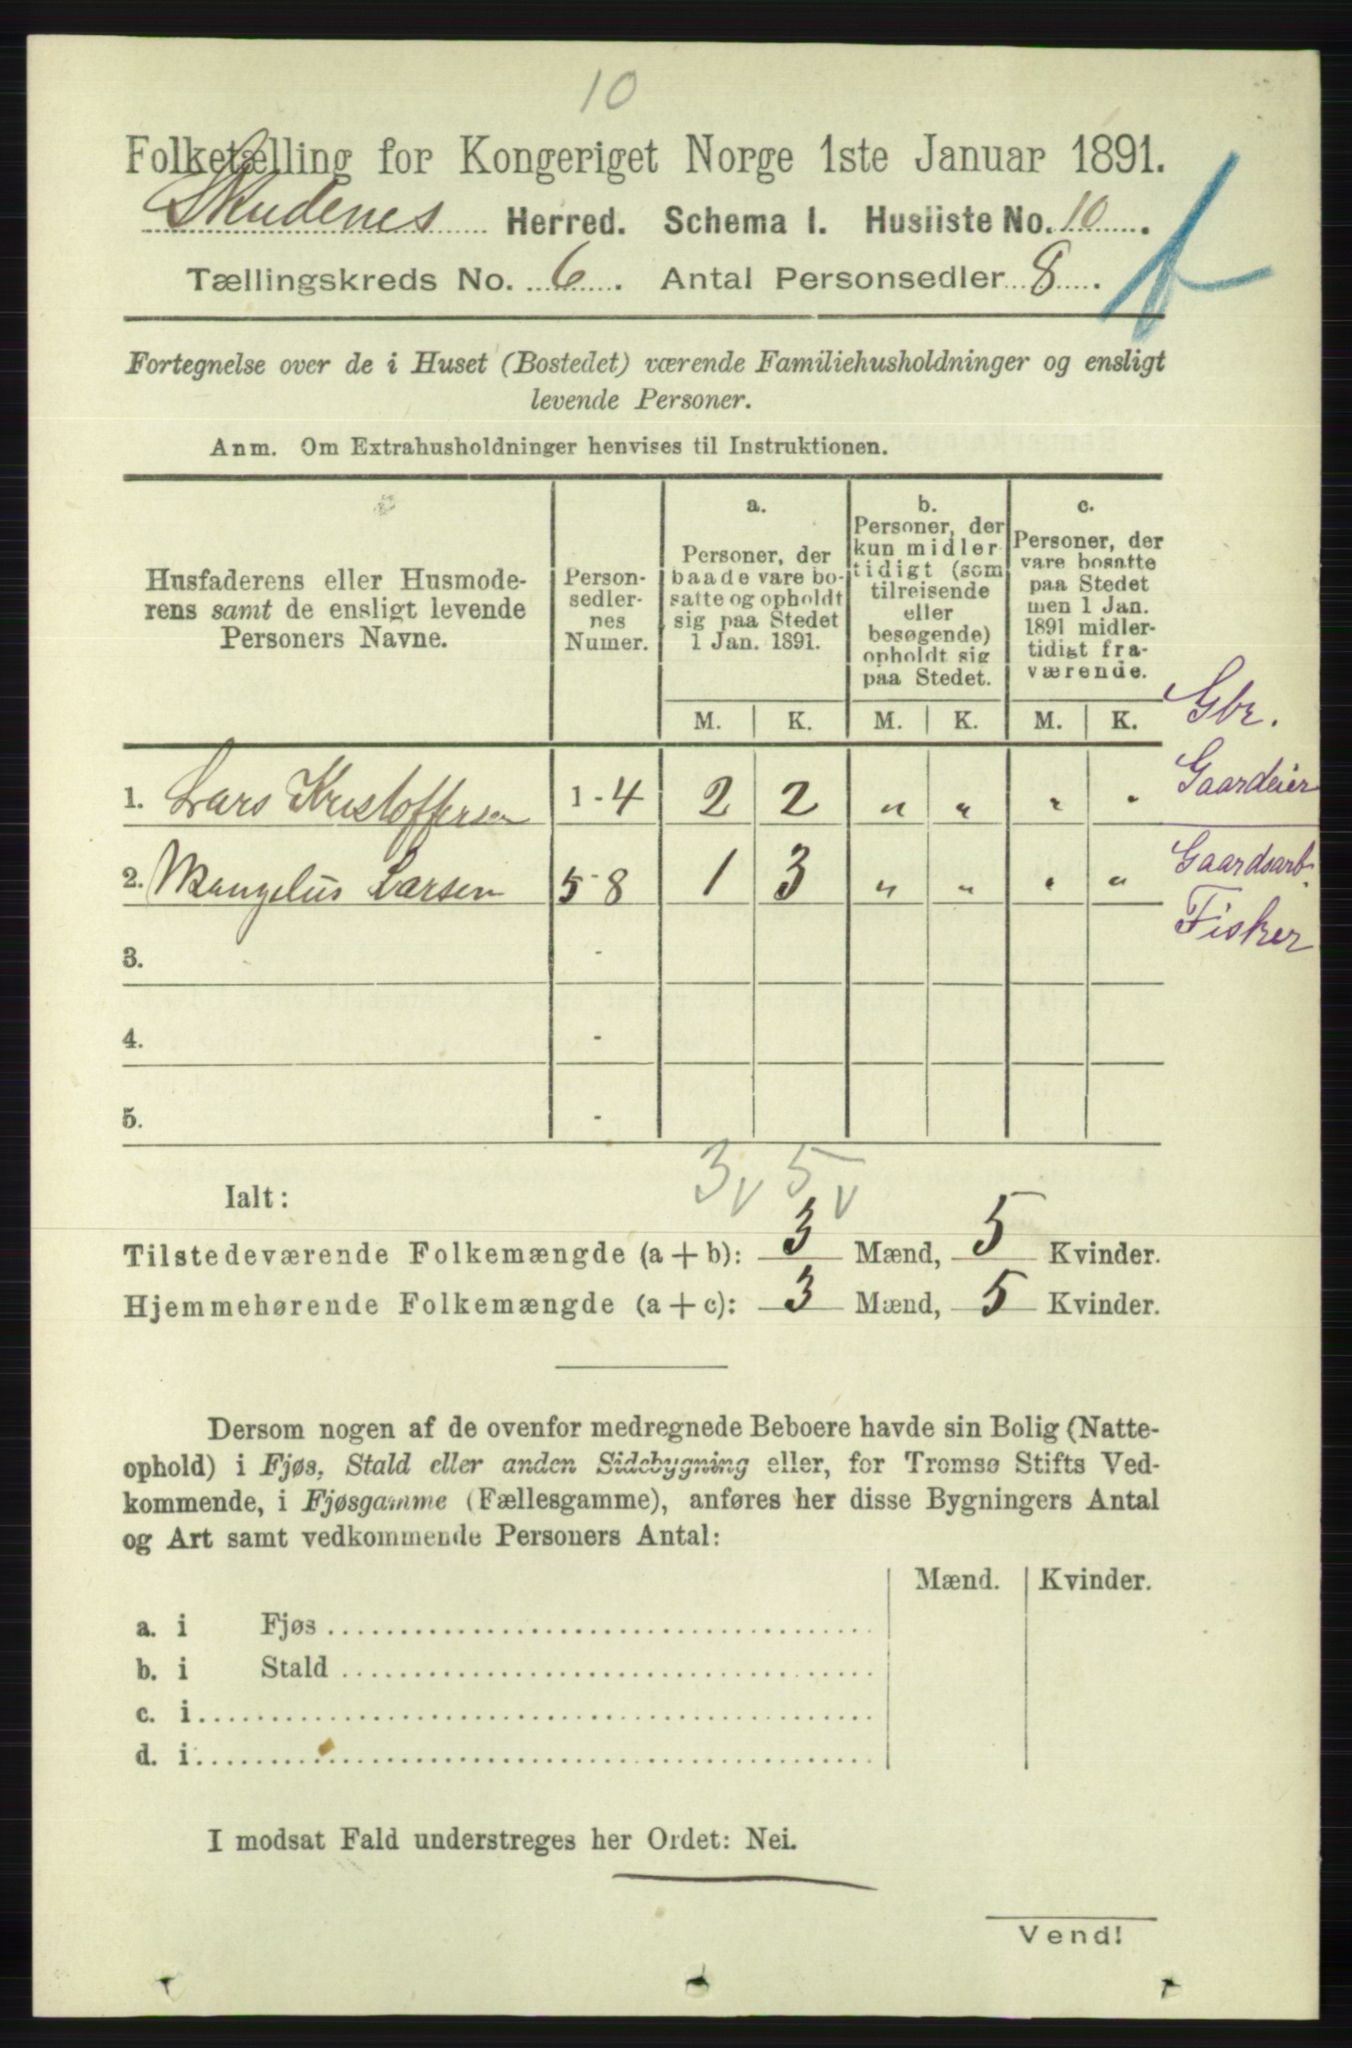 10
Folketælling for Kongeriget Norge 1ste Januar 1891.
Skudenes Herred. Schema I. Husliste No. 10.
Tællingskreds No. 6. Antal Personsedler 8.
Fortegnelse over de i Huset (Bostedet) værende Familiehusholdninger og ensligt
levende Personer.
Anm. Om Extrahusholdninger henvises til Instruktionen.
Husfaderens eller Husmode-
rens samt de ensligt levende
Personers Navne.
Person-
sedler-
nes
Numer.
a.
Personer, der
baade vare bo-
satte og opholdt
sig paa Stedet
1 Jan. 1891.
b.
Personer, der
kun midler-
tidigt (som
tilreisende
eller
besøgende)
opholdt sig
paa Stedet.
c.
Personer, der
vare bosatte
paa Stedet
men 1 Jan.
1891 midler-
tidigt fra-
værende.
M. K. M. K. M. K.
Gbr.
1. Lars Kristoffersen 1-4 2 2 " " " " Gaardeier
2. Mangelus Larsen 5-8 1 3 " " " " Gaardsarb.
Fisker
3. -
4. -
5. -
3 v 5 v
Ialt:
Tilstedeværende Folkemængde (a + b): 3 Mænd, 5 Kvinder.
Hjemmehørende Folkemængde (a + c): 3 Mænd, 5 Kvinder.
Dersom nogen af de ovenfor medregnede Beboere havde sin Bolig (Natte-
ophold) i Fjøs, Stald eller anden Sidebygning eller, for Tromsø Stifts Ved-
kommende, i Fjøsgamme (Fællesgamme), anføres her disse Bygningers Antal
og Art samt vedkommende Personers Antal:
Mænd. Kvinder.
a. i Fjøs
b. i Stald
c. i
d. i
I modsat Fald understreges her Ordet: Nei.
Vend!